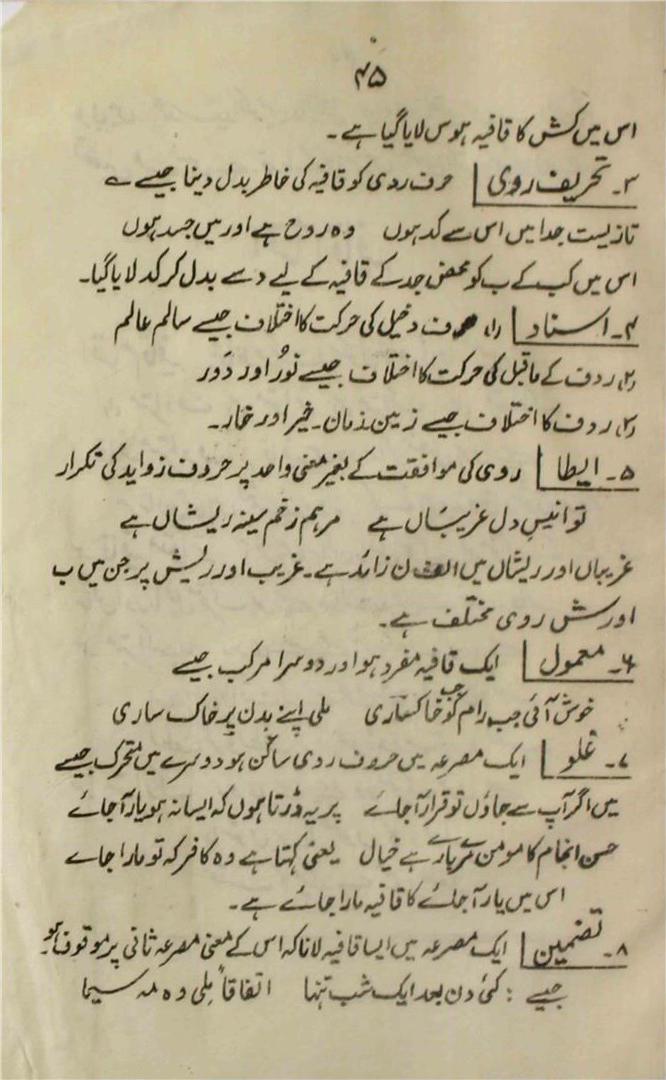 ۴۵
اس میں کش کا قافیہ ہوس لایا گیا ہے۔
۳۔ تحریف روی حرف روی کو قافیہ کی خاطر بدل دینا جیسے ے
تازیست جدا میں اس سے کد ہوں وہ روح ہے اور میں جسد ہوں
اس میں کب کے ب کو محض جد کے قافیہ کے لیے د سے بدل کر کد لایا گیا۔
۴۔ اسناد (۱) حرف دخیل کی حرکت کا اختلاف جیسے سالم عالم
(۲) ردف کے ماقبل کی حرکت کا اختلاف جیسے نُور اور دَور
(۳) ردف کا اختلاف جیسے زمین۔ زمان۔ خیر اور خار۔
۵۔ ایطا روی کی موافقت کے بغیر معنی واحد پر حروف زواید کی تکرار
تو انیسِ دل غریباں ہے مرہم زخم سینہ ریشاں ہے
غریباں اور ریشاں میں الف ن زائد ہے۔ غریب اور ریش پر جن میں ب
اور ش روی مختلف ہے۔
۶۔ معمول ایک قافیہ مفرد ہو اور دوسرا مرکب جیسے
خوش آئی جب رام کو خاکساری ملی اپنے بدن پر خاک ساری
۷۔ غلو ایک مصرعہ میں حروف روی ساکن ہو دوسرے میں متحرک جیسے
میں اگر آپ سے جاؤں تو قرار آجائے پر یہ ڈرتا ہوں کہ ایسا نہ ہو یار آجائے
حسن انجام کا مومن مرے بارے ہے خیال یعنی کہتا ہے وہ کافر کہ تو مارا جائے
اس میں یار آجائے کا قافیہ مارا جائے ہے۔
۸۔ تضمین ایک مصرعہ میں ایسا قافیہ لانا کہ اس کے معنی مصرعہ ثانی پر موقوف ہو۔
جیسے : کئی دن بعد ایک شب تنہا اتفاقاً ملی وہ مہ سیما